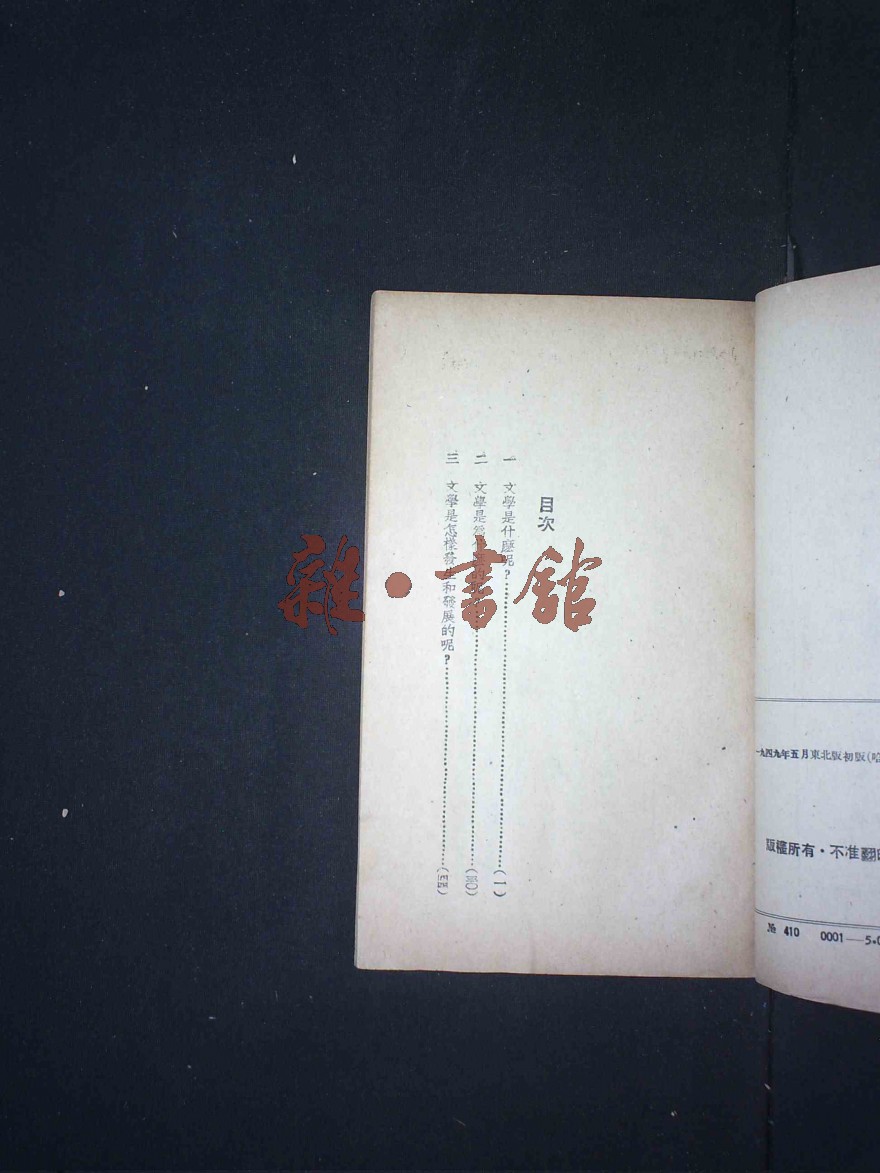 目次
一 文學是什麼呢?……(一)
二 文學是
三 文學是怎樣發生和發展的呢?……
雜・書館
一九四九年五月東北版初版(哈
版權所有・不准翻
№ 410 0001—5.0